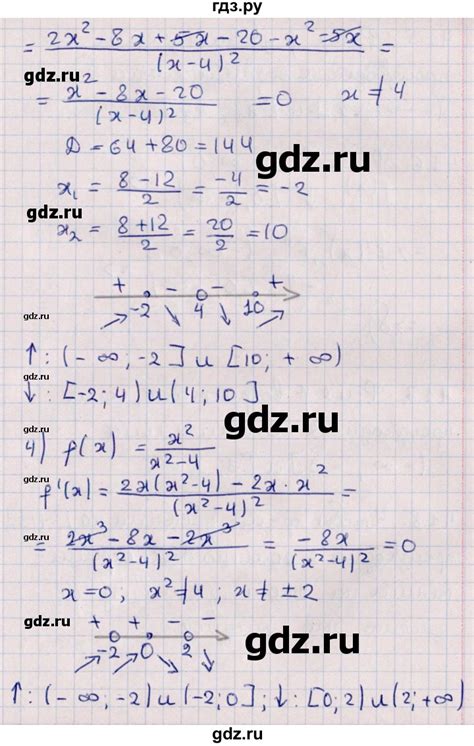 гдз.ру
= (2x² - 8x + 5x - 20 - x² - 5x)/(x-4)² =
gdz.ru
= (x² - 8x - 20)/(x-4)² = 0 x ≠ 4
gdz.ru
D = 64 + 80 = 144
gdz.ru
x₁ = (8-12)/2 = -4/2 = -2
gdz.ru
x₂ = (8+12)/2 = 20/2 = 10
gdz.ru
+ - - +
-2 4 10
gdz.ru
gdz.ru
↑: (-∞; -2] u [10; +∞)
gdz.ru
↓: [-2; 4) u (4; 10]
gdz.ru
4) f(x) = x²/(x²-4)
gdz.ru
f'(x) = (2x(x²-4) - 2x · x²)/(x²-4)² =
gdz.ru
= (2x³ - 8x - 2x³)/(x²-4)² = -8x/(x²-4)² = 0
gdz.ru
x = 0, x² ≠ 4; x ≠ ±2
gdz.ru
+ + - -
-2 0 2
gdz.ru
gdz.ru
↑: (-∞, -2) u (-2; 0]; ↓: [0; 2) u (2; +∞)
gdz.ru